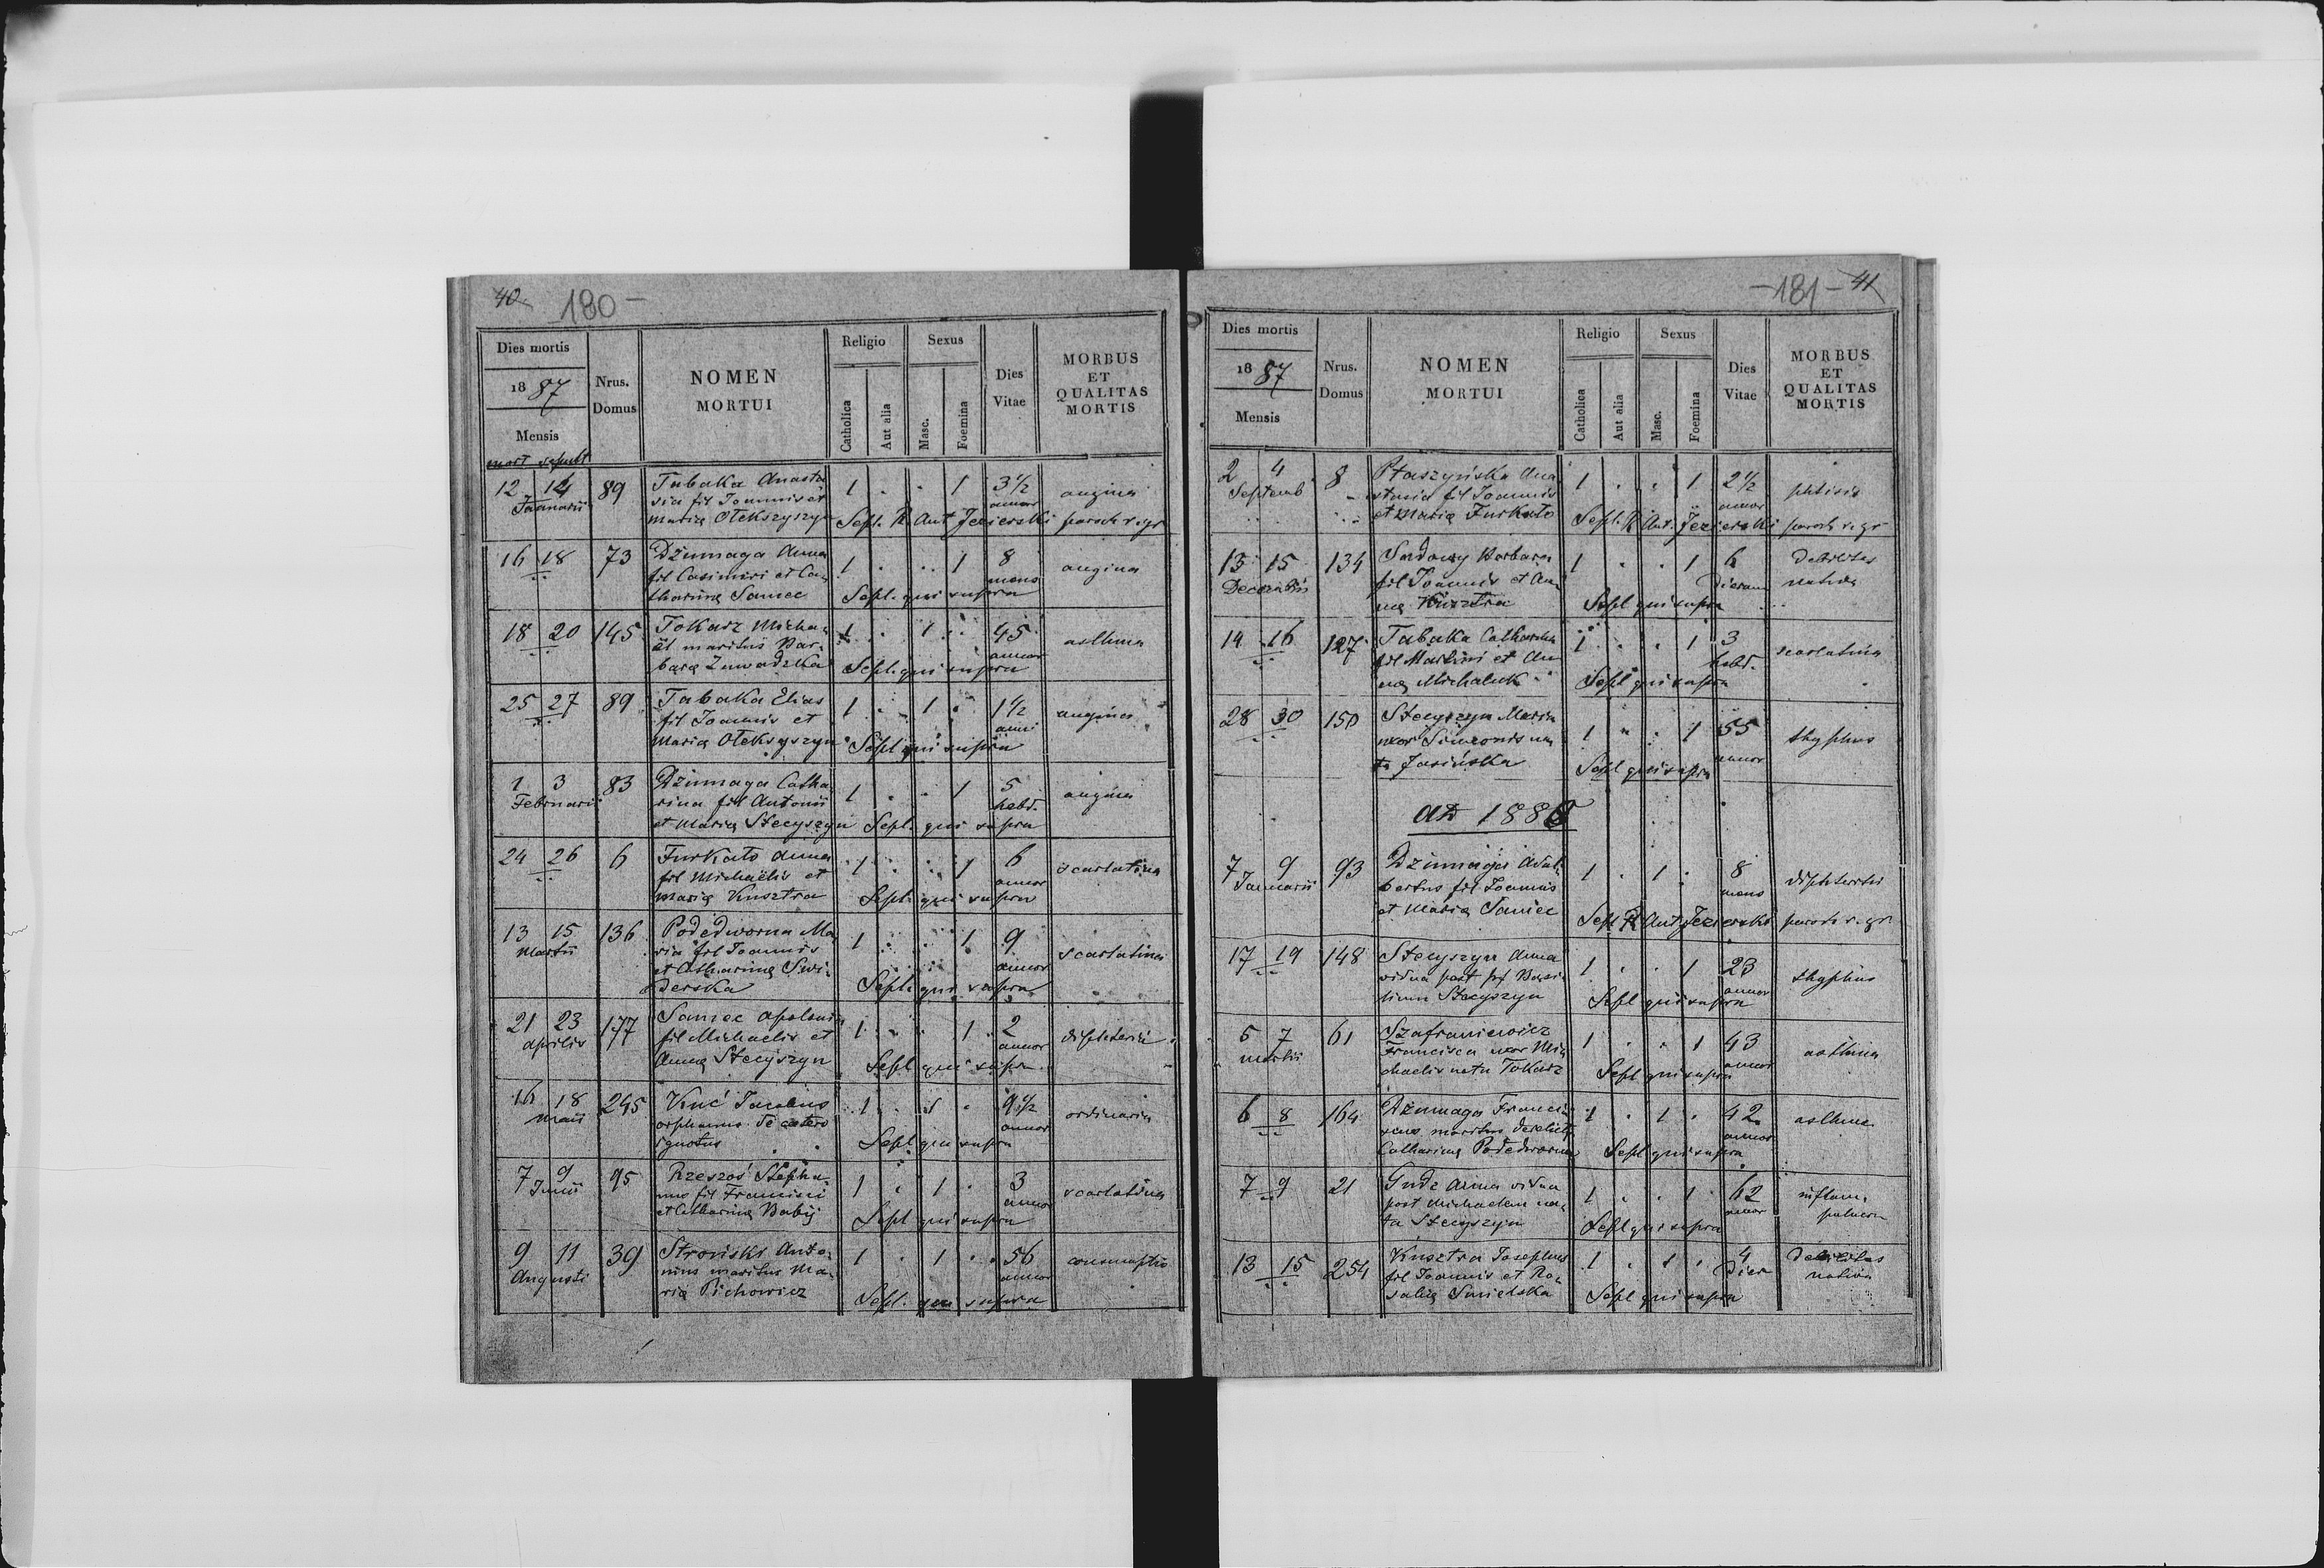 40 180 -
Dies mortis
1887
Mensis
mort sepult
Nrus.
Domus
NOMEN
MORTUI
Religio
Catholica
Aut alia
Sexus
Masc.
Foemina
Dies
Vitae
MORBUS
ET
QUALITAS
MORTIS
12 14 89 Tabaka Anasta 1 . . 1 3½ angina
Januarii sia fil Joannis et annor
Maria Olekszyszyn Sepl. R Ant Jezierski paroch r. gr
16 18 73 Dżumaga Anna 1 . . 1 8 angina
fil Casimiri et Ca mens
tharina Samiec Sepl. qui supra
18 20 145 Tokarz Micha 1 . 1 . 45 asthma
ël maritus Bar annor
bara Zawadzka Sepl. qui supra
25 27 89 Tabaka Elias 1 . 1 . 1½ angina
fil Joannis et anni
Maria Olekszyszyn Sepl qui supra
1 3 83 Dżumaga Catha 1 . . 1 5 angina
Februarii rina fil Antonii hebd.
et Maria Stecyszyn Sepl. qui supra
24 26 6 Furkato Anna 1 . . 1 6 scarlatina
fil Michaëlis et annor
Maria Kusztra Sepl. qui supra
13 15 136 Podedworna Ma 1 . . 1 9 scarlatina
Martii ria fil Joannis annor
et Catharina Swi
derska Sepl. qui supra
21 23 177 Samiec Apoloni 1 . . 1 2 diphteria
Aprilis fil Michaelis et annor
Anna Stecyszyn Sepl qui supra
16 18 245 Kuć Jacobus 1 . 1 . 9½ ordinaria
Maii orphanus de cetero annor
ignotus Sepl qui supra
7 9 95 Rzeszoś Stepha 1 . 1 . 3 scarlatina
Junii nus fil Francisci annor
et Catharina Babij Sepl qui supra
9 11 39 Stroński Anto 1 . 1 . 56 consumptio
Augusti nius maritus Ma annor
ria Pichowicz Sepl. qui supra
- 181 - 41
Dies mortis
1887
Mensis
Nrus.
Domus
NOMEN
MORTUI
Religio
Catholica
Aut alia
Sexus
Masc.
Foemina
Dies
Vitae
MORBUS
ET
QUALITAS
MORTIS
2 4 8 Ptaszyńska Ana 1 . . 1 2½ phtisis
Septemb stasia fil Joannis annor
et Maria Furkato Sepl. R Ant. Jezierski paroch r. gr
13 15 134 Sadowy Barbara 1 . . 1 6 debilitas
Decembris fil Joannis et An dierum nativa
na Kusztra Sepl qui supra
14 16 127 Tabaka Catharina 1 . . 1 3 scarlatina
fil Martini et An hebd.
na Michaluk Sepl qui supra
28 30 150 Stecyszyn Maria 1 . . 1 55 thyphus
uxor Simeonis na annor
ta Jasińska Sepl qui supra
AD 1888
7 9 93 Dżumaga Adal 1 . 1 . 8 diphteritis
Januarii bertus fil Joannis mens
et Maria Samiec Sepl R Ant Jezierski paroch r. gr.
17 19 148 Stecyszyn Anna 1 . . 1 23 thyphus
vidua post pf Basi annor
lium Stecyszyn Sepl qui supra
5 7 61 Szafraniewicz 1 . . 1 43 asthma
Martii Francisca uxor Mi annor
chaelis nata Tokarz Sepl qui supra
6 8 164 Dżumaga Franci 1 . 1 . 42 asthma
scus maritus derelicta annor
Catharina Podedworna Sepl qui supra
7 9 21 Gudz Anna vidua 1 . . 1 62 inflam.
post Michaelem na annor pulmon
ta Stecyszyn Sepl qui supra
13 15 254 Kusztra Josephus 1 . 1 . 4 debilitas
fil Joannis et Ro dier nativa
salia Smielska Sepl qui supra